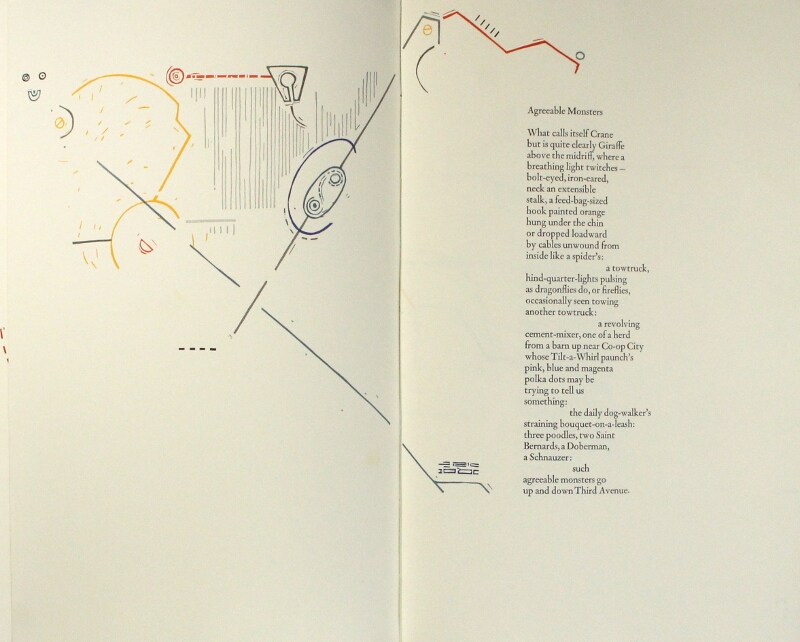 Agreeable Monsters
What calls itself Crane
but is quite clearly Giraffe
above the midriff, where a
breathing light twitches —
bolt-eyed, iron-eared,
neck an extensible
stalk, a feed-bag-sized
hook painted orange
hung under the chin
or dropped loadward
by cables unwound from
inside like a spider's:
a towtruck,
hind-quarter-lights pulsing
as dragonflies do, or fireflies,
occasionally seen towing
another towtruck:
a revolving
cement-mixer, one of a herd
from a barn up near Co-op City
whose Tilt-a-Whirl paunch's
pink, blue and magenta
polka dots may be
trying to tell us
something:
the daily dog-walker's
straining bouquet-on-a-leash:
three poodles, two Saint
Bernards, a Doberman,
a Schnauzer:
such
agreeable monsters go
up and down Third Avenue.